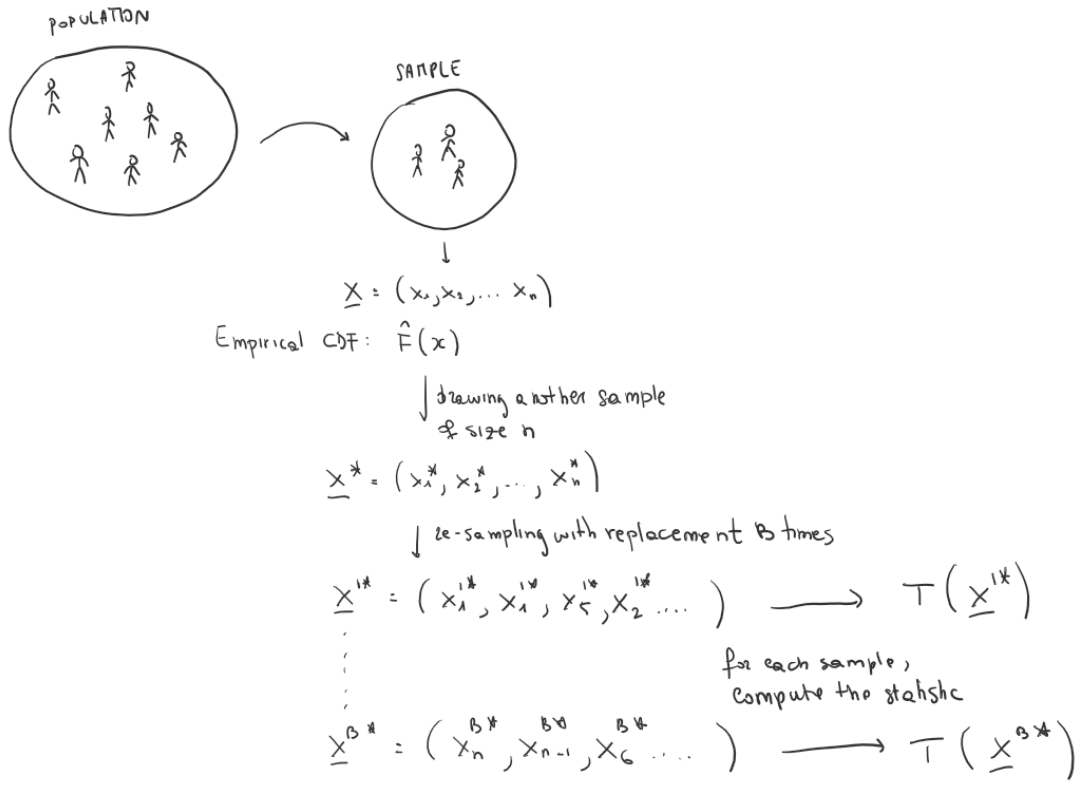 POPULATION
SAMPLE
X = (x₁, x₂, ... xₙ)
Empirical CDF: F̂(x)
drawing another sample
of size n
X* = (x₁*, x₂*, ..., xₙ*)
re-sampling with replacement B times
X¹* = (x₁¹*, x₁¹*, x₅¹*, x₂¹* ....) T(X¹*)
for each sample,
compute the statistic
Xᴮ* = (xₙᴮ*, xₙ₋₁ᴮ*, x₆ᴮ* ....) T(Xᴮ*)